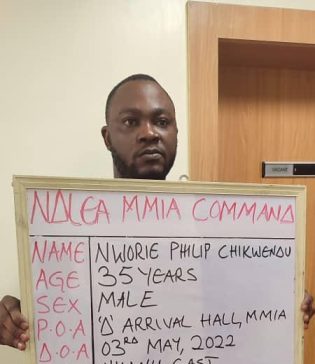 NDLEA MMIA COMMAND
NAME NWORIE PHILIP CHIKWENDU
AGE 35 YEARS
SEX MALE
P.O.A 'D' ARRIVAL HALL, MMIA
D.O.A 03RD MAY, 2022